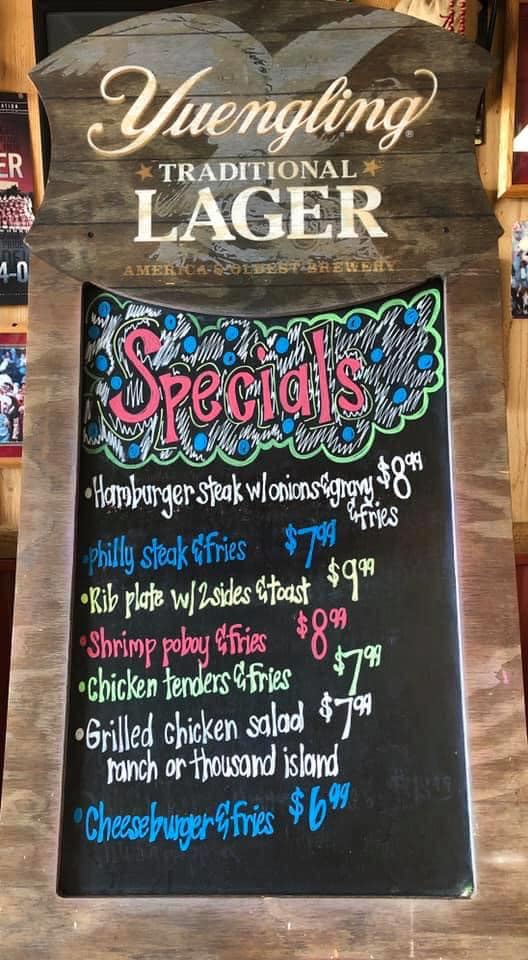 Yuengling®
TRADITIONAL
LAGER
AMERICA'S OLDEST BREWERY
ER
4-0
Specials
•Hamburger steak w/onions&gravy $8.99
&fries
•philly steak &fries $7.99
•Rib plate w/ 2 sides &toast $9.99
•Shrimp poboy &fries $8.99
•chicken tenders &fries $7.99
•Grilled chicken salad $7.99
ranch or thousand island
•Cheeseburger &fries $6.99